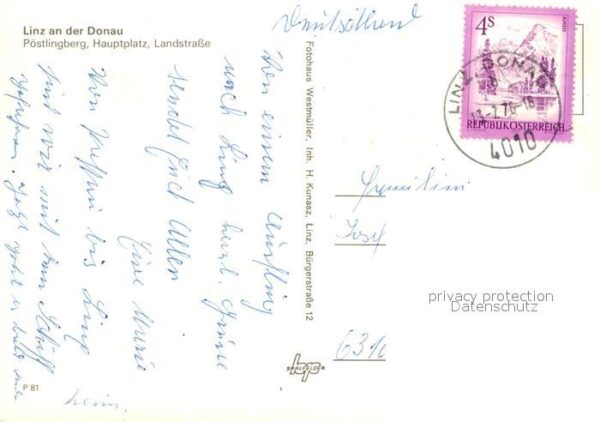 Linz an der Donau
Pöstlingberg, Hauptplatz, Landstraße
Von einem Ausflug
nach Linz herzl. Grüße
sendet Euch Allen
Eure Marie
Von Passau bis Linz
sind wir mit dem Schiff
gefahren. Jetzt geht es bald
heim.
P 81
Fotohaus Westmüller, Inh. H. Kunasz, Linz, Bürgerstraße 12
SAALFELDEN
Deutschland
4S
ALMSEE
REPUBLIK ÖSTERREICH
LINZ, DONAU
4010
Familie
Josef
privacy protection
Datenschutz